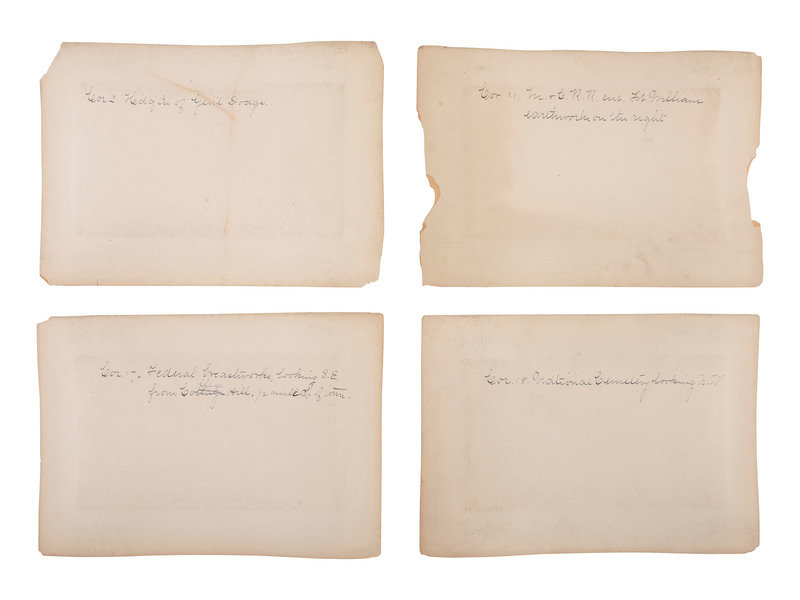 Cor 2. Hdqrs of Genl Dodge.
Cor. 11. M. & C. R. R cut. Ft William
earthworks on the right
Cor. 17. Federal breastworks, looking S.E.
from College Hill. ½ mile S. of town.
Cor. 18. National Cemetery looking N.W